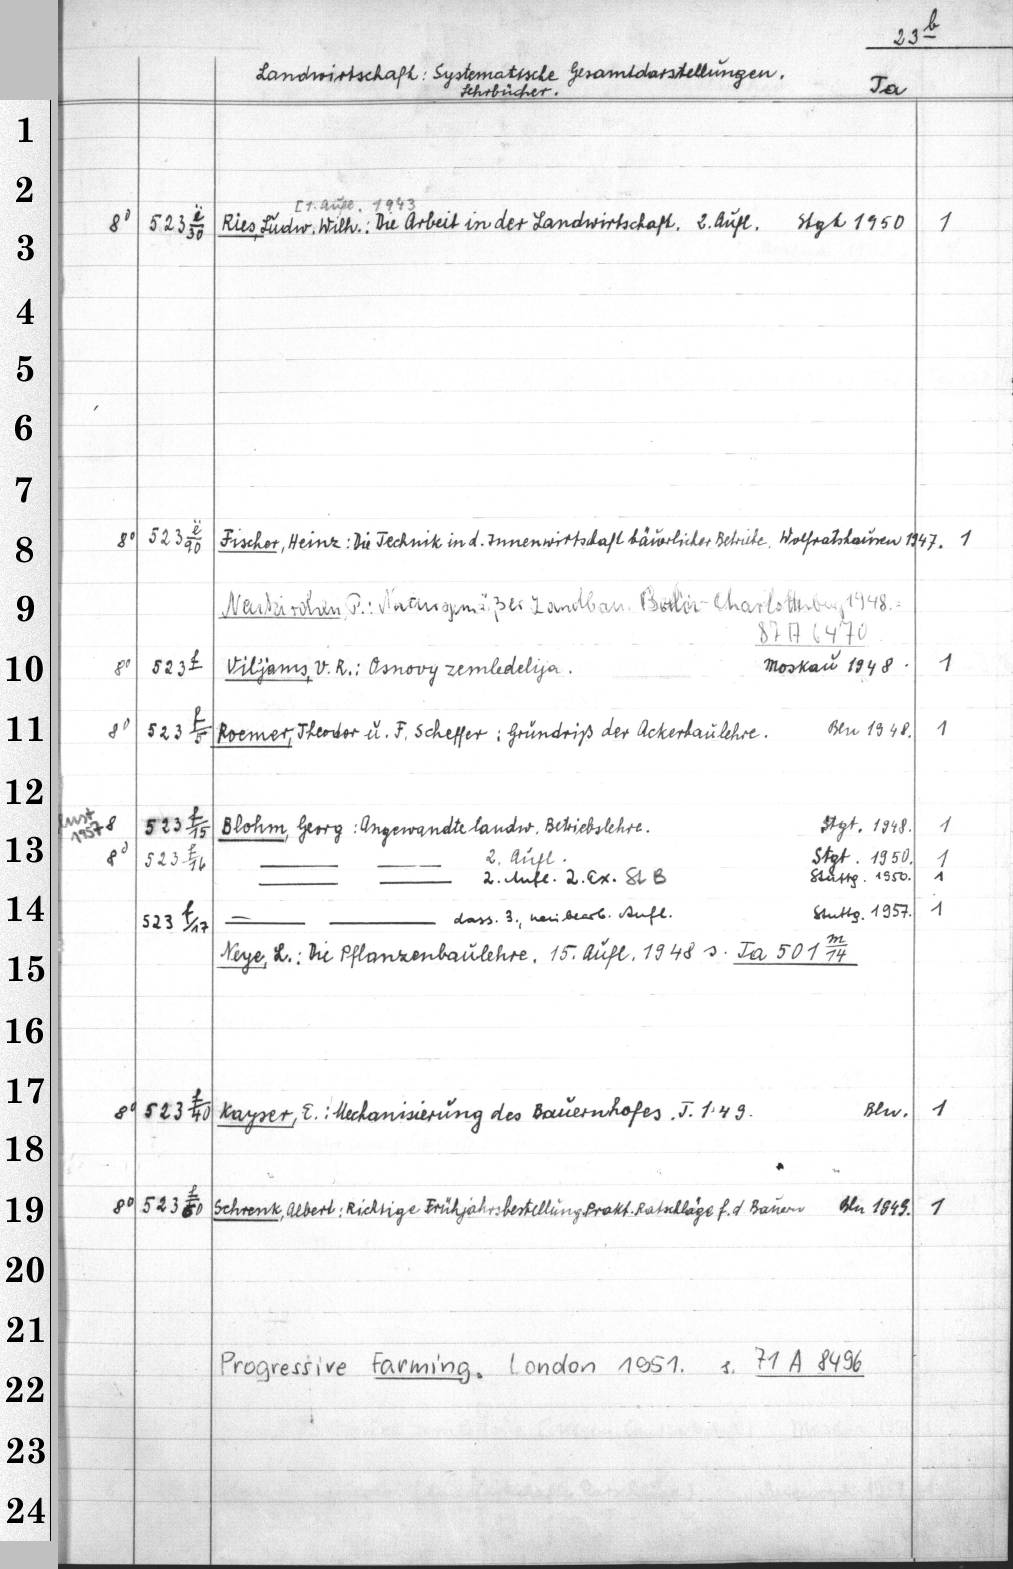 23 b
Landwirtschaft: Systematische Gesamtdarstellungen.
Lehrbücher.
Ta
1
2
[1. Aufl. 1943
8° 523 ë/30 Ries, Ludw. Wilh.: Die Arbeit in der Landwirtschaft. 2. Aufl. Stgt 1950 1
3
4
5
6
7
8° 523 ë/90 Fischer, Heinz: Die Technik in d. Innenwirtschaft bäuerlicher Betriebe. Wolfratshausen 1947. 1
8
9 P.: Naturgemäßer Landbau. Berlin-Charlottenburg 1948.=
87 A 6470
10 8° 523 f Vil'jams, V. R.: Osnovy zemledelija. Moskau 1948. 1
11 8° 523 f/5 Roemer, Theodor u. F. Scheffer: Grundriß der Ackerbaulehre. Bln 1948. 1
12
1957 8 523 f/15 Blohm, Georg: Angewandte landw. Betriebslehre. Stgt. 1948. 1
13 8° 523 f/16 —— —— 2. Aufl. Stgt. 1950. 1
—— —— 2. Aufl. 2. Ex. St B Stuttg. 1950. 1
14 523 f/17 —— —— dass. 3., neubearb. Aufl. Stuttg. 1957. 1
15 Neye, L.: Die Pflanzenbaulehre. 15. Aufl. 1948 s. Ta 501 m/14
16
17 8° 523 f/40 Kayser, E.: Mechanisierung des Bauernhofes. T. 1. 49. Bln. 1
18
19 8° 523 f/60 Schrenk, Albert: Richtige Frühjahrsbestellung. Prakt. Ratschläge f. d Bauern Bln 1949. 1
20
21
Progressive Farming. London 1951. s. 71 A 8496
22
23
24